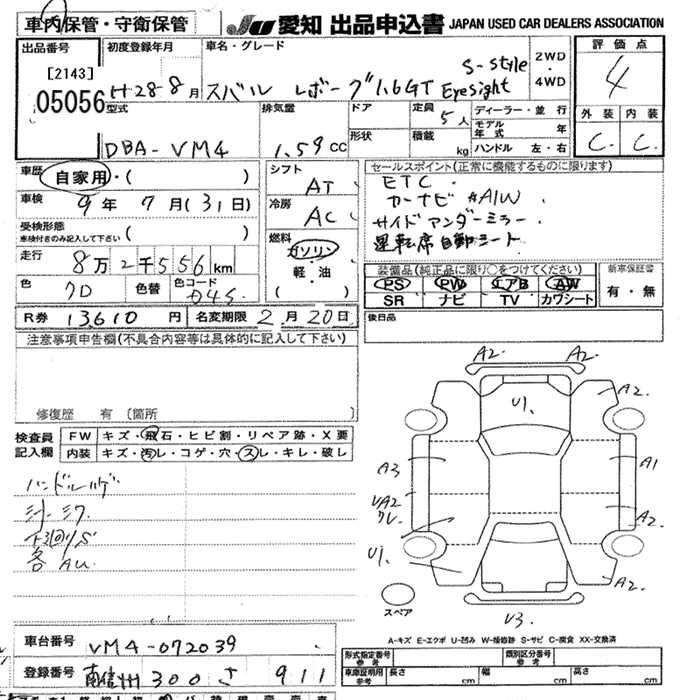 車内保管・守衛保管
JU 愛知 出品申込書 JAPAN USED CAR DEALERS ASSOCIATION
出品番号 初度登録年月 車名・グレード 2WD・4WD 評価点
[2143]
05056
H-28-8月 スバル レボーグ1.6GT S-style Eyesight 4
型式 排気量 ドア 定員 5人 ディーラー・並行 外装 内装
モデル年式 年
DBA-VM4 1.59cc 形状 積載 kg ハンドル 左・右 C. C.
車歴 自家用・( ) シフト AT
セールスポイント(正常に機能するものに限ります)
車検 9年 7月(31日) 冷房 AC
ETC.
カーナビ AIW
サイドアンダーミラー
運転席自動シート
受検形態 車検付きのみ記入して下さい ( )
燃料 ガソリン・軽・油 ( )
走行 8万2千556km
装備品(純正品に限り○をつけてください) 新車保証書
PS PW エアB AW 有・無
SR ナビ TV カワシート
色 色替 色コード D4S
R券 13,610円 名変期限 2月20日
後日品
注意事項申告欄(不具合内容等は具体的に記入して下さい)
修復歴 有 [箇所
検査員記入欄
FW キズ・飛石・ヒビ割・リペア跡・X要
内装 キズ・汚レ・コゲ・穴・スレ・キレ・破レ
ハンドルハゲ
各AU
A2. A2.
A2.
U1.
A3 A1
A2.
U1.
A2.
V3.
スペア
A-キズ E-エクボ U-凹み W-補修跡 S-サビ C-腐食 XX-交換済
車台番号 VM4-072039
登録番号 300 さ 911
形式指定番号 参考 類別区分番号 参考
車庫証明用 参考 長さ cm 幅 cm 高さ cm